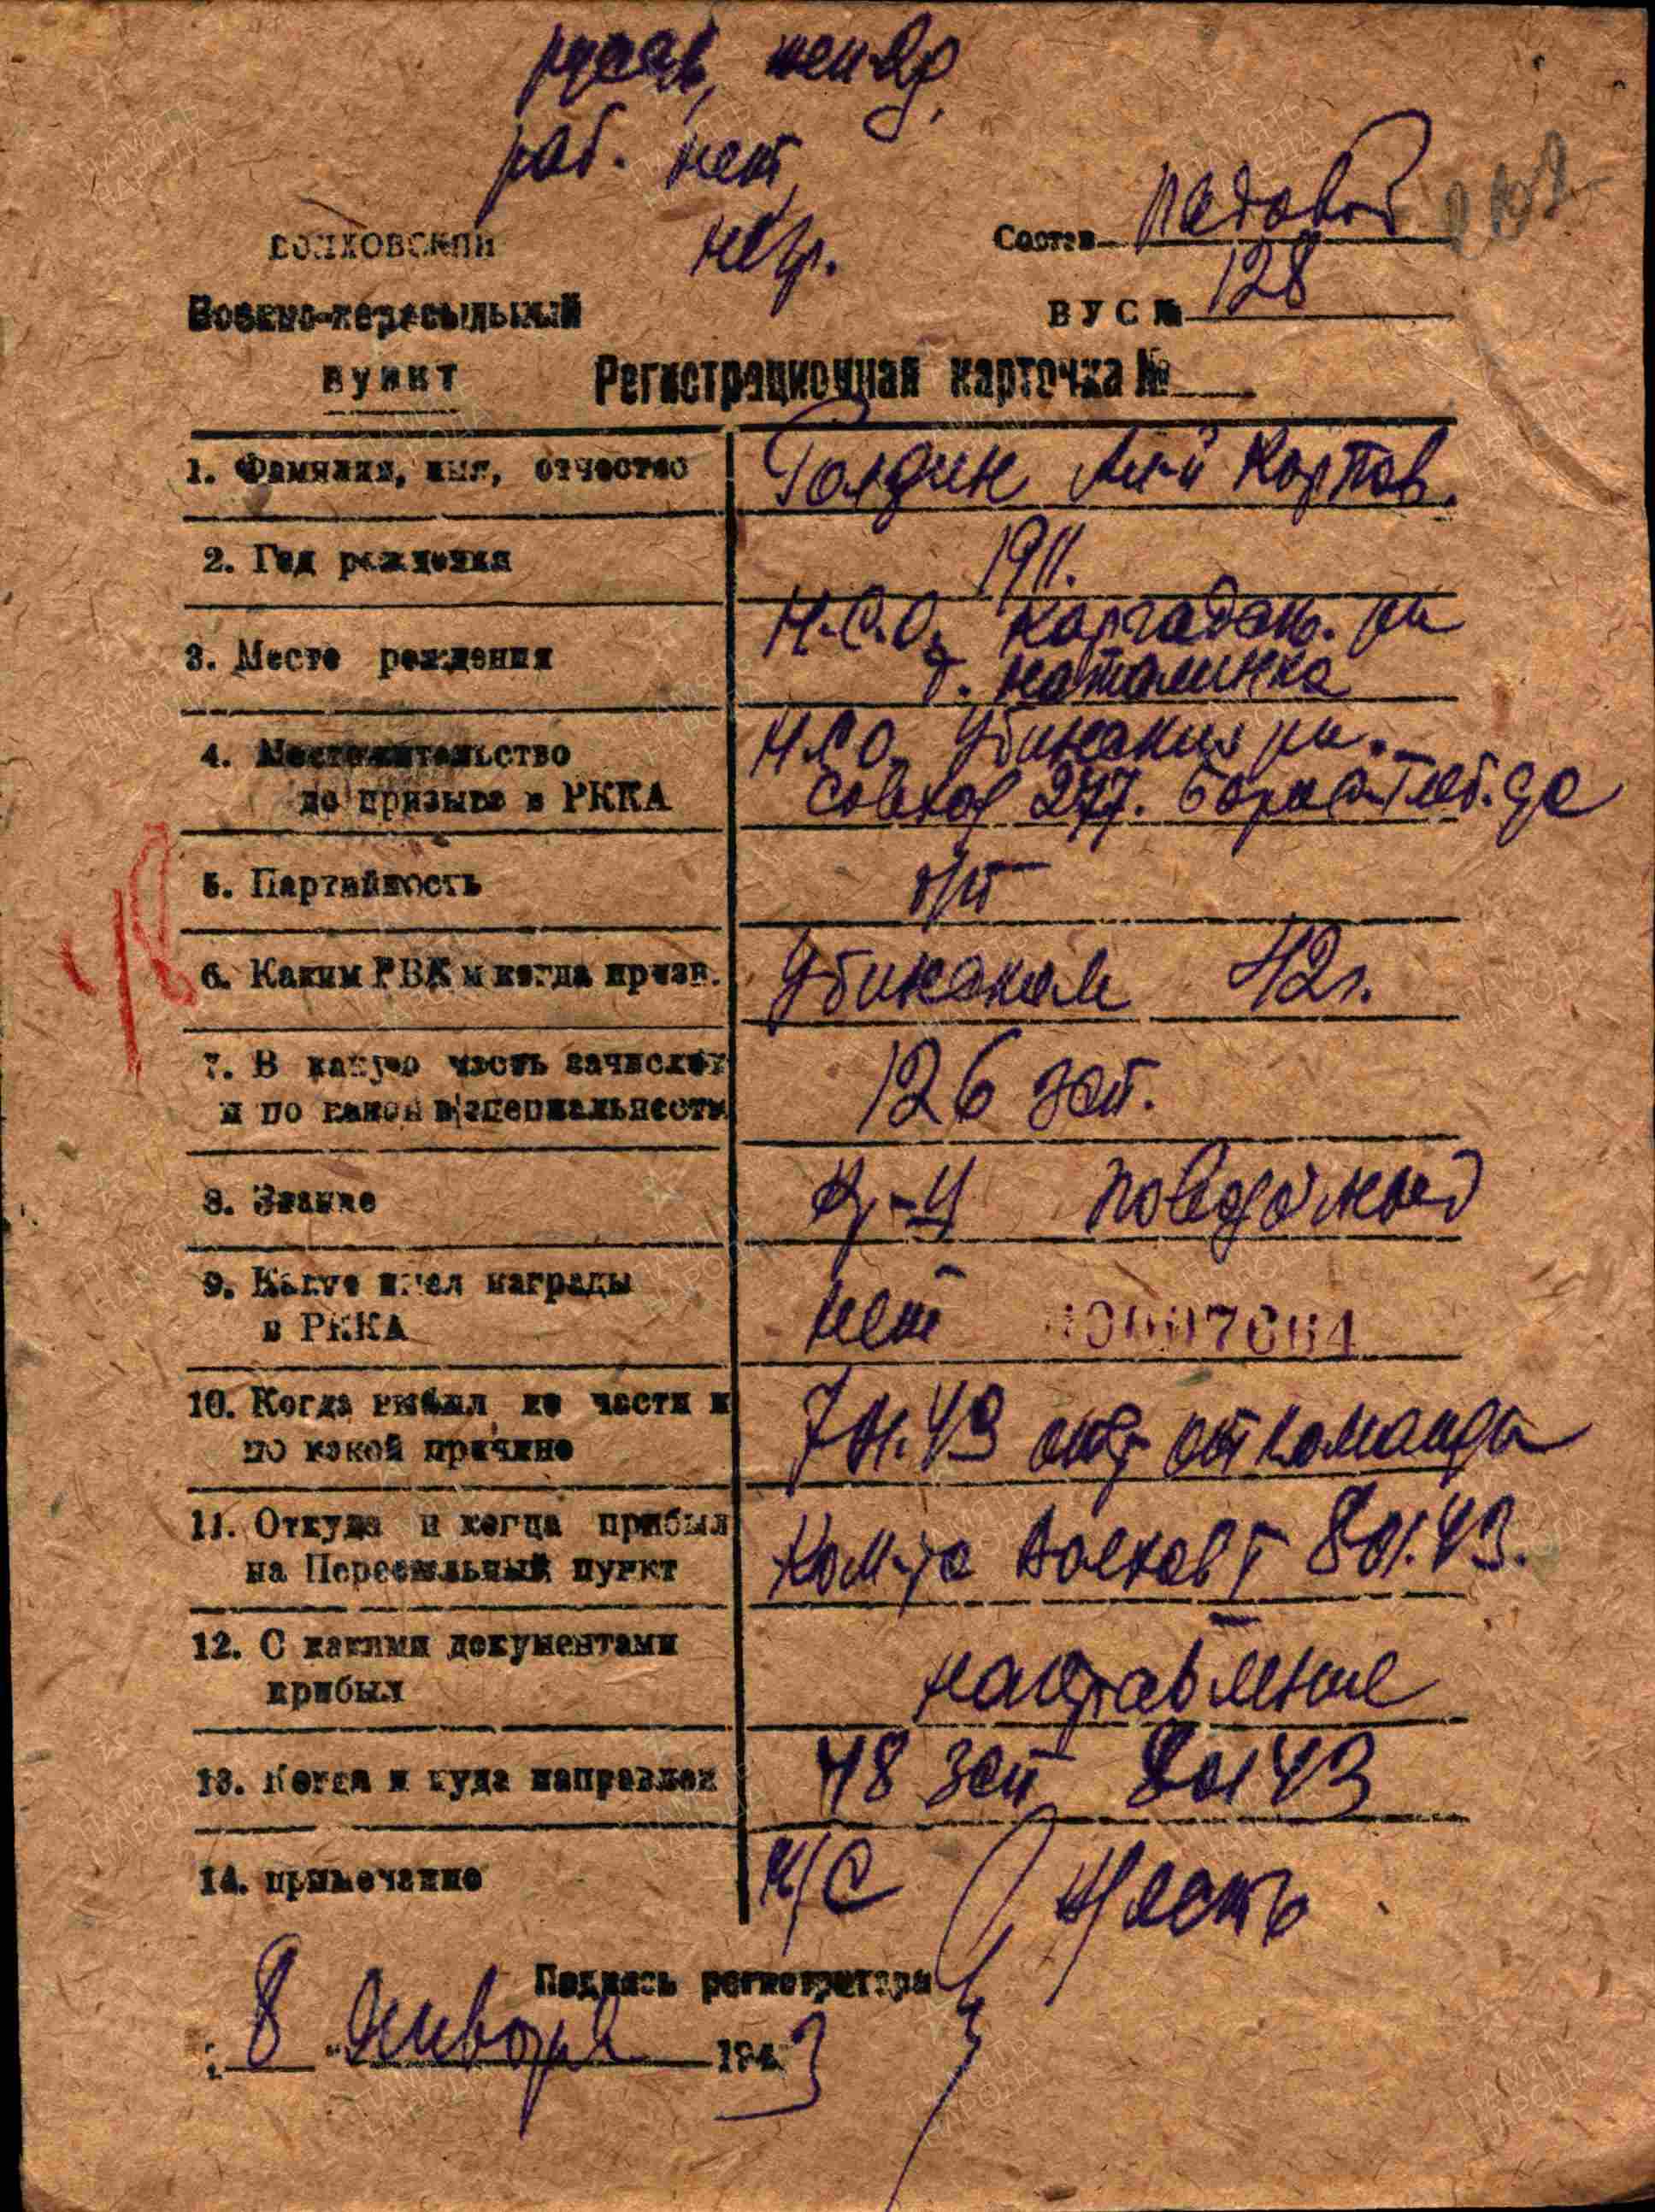 русск, женар,
раб. нет,
негр.
ВОЛХОВСКИЙ
Военно-пересыльный
пункт
Состав рядовой
ВУС № 128
Регистрационная карточка №
1. Фамилия, имя, отчество Голдин Ал-й Карпов.
2. Год рождения 1911.
3. Место рождения Н.С.О, Каргатск. р-н
д. Наталинка
4. Местожительство Н.С.О. Убинский р-н.
до призыва в РККА Совхоз 277.
5. Партийность б/п
6. Каким РВК и когда призв. Убинским 42 г.
7. В какую часть зачислен
и по какой специальности 126 зсп.
8. Звание кр-ц повозочный
9. Какие имел награды
в РККА нет
10. Когда выбыл из части и
по какой причине 7.01.43 отст от команды
11. Откуда и когда прибыл
на Пересыльный пункт Ком-ра Волхов I 8.01.43.
12. С какими документами
прибыл направление
13. Когда и куда направлен 48 зсп 8 01 43
14. примечание н/с
48
Подпись регистратора
"8" Января 1943